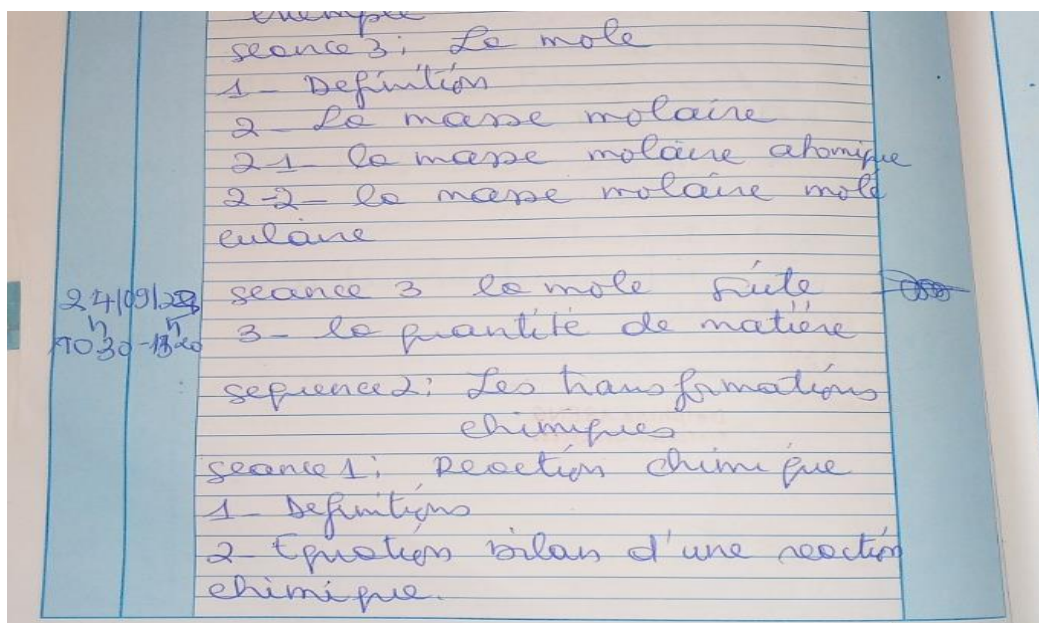 exemple
seance 3: La mole
1- Definition
2- La masse molaire
2-1- la masse molaire atomique
2-2- la masse molaire molé
culaire
24/09/ seance 3 la mole suite
10h30 - 3- la quantité de matière
sequence 2: Les transformations
chimiques
seance 1: Reaction chimique
1- Definitions
2- Equation bilan d'une reaction
chimique.